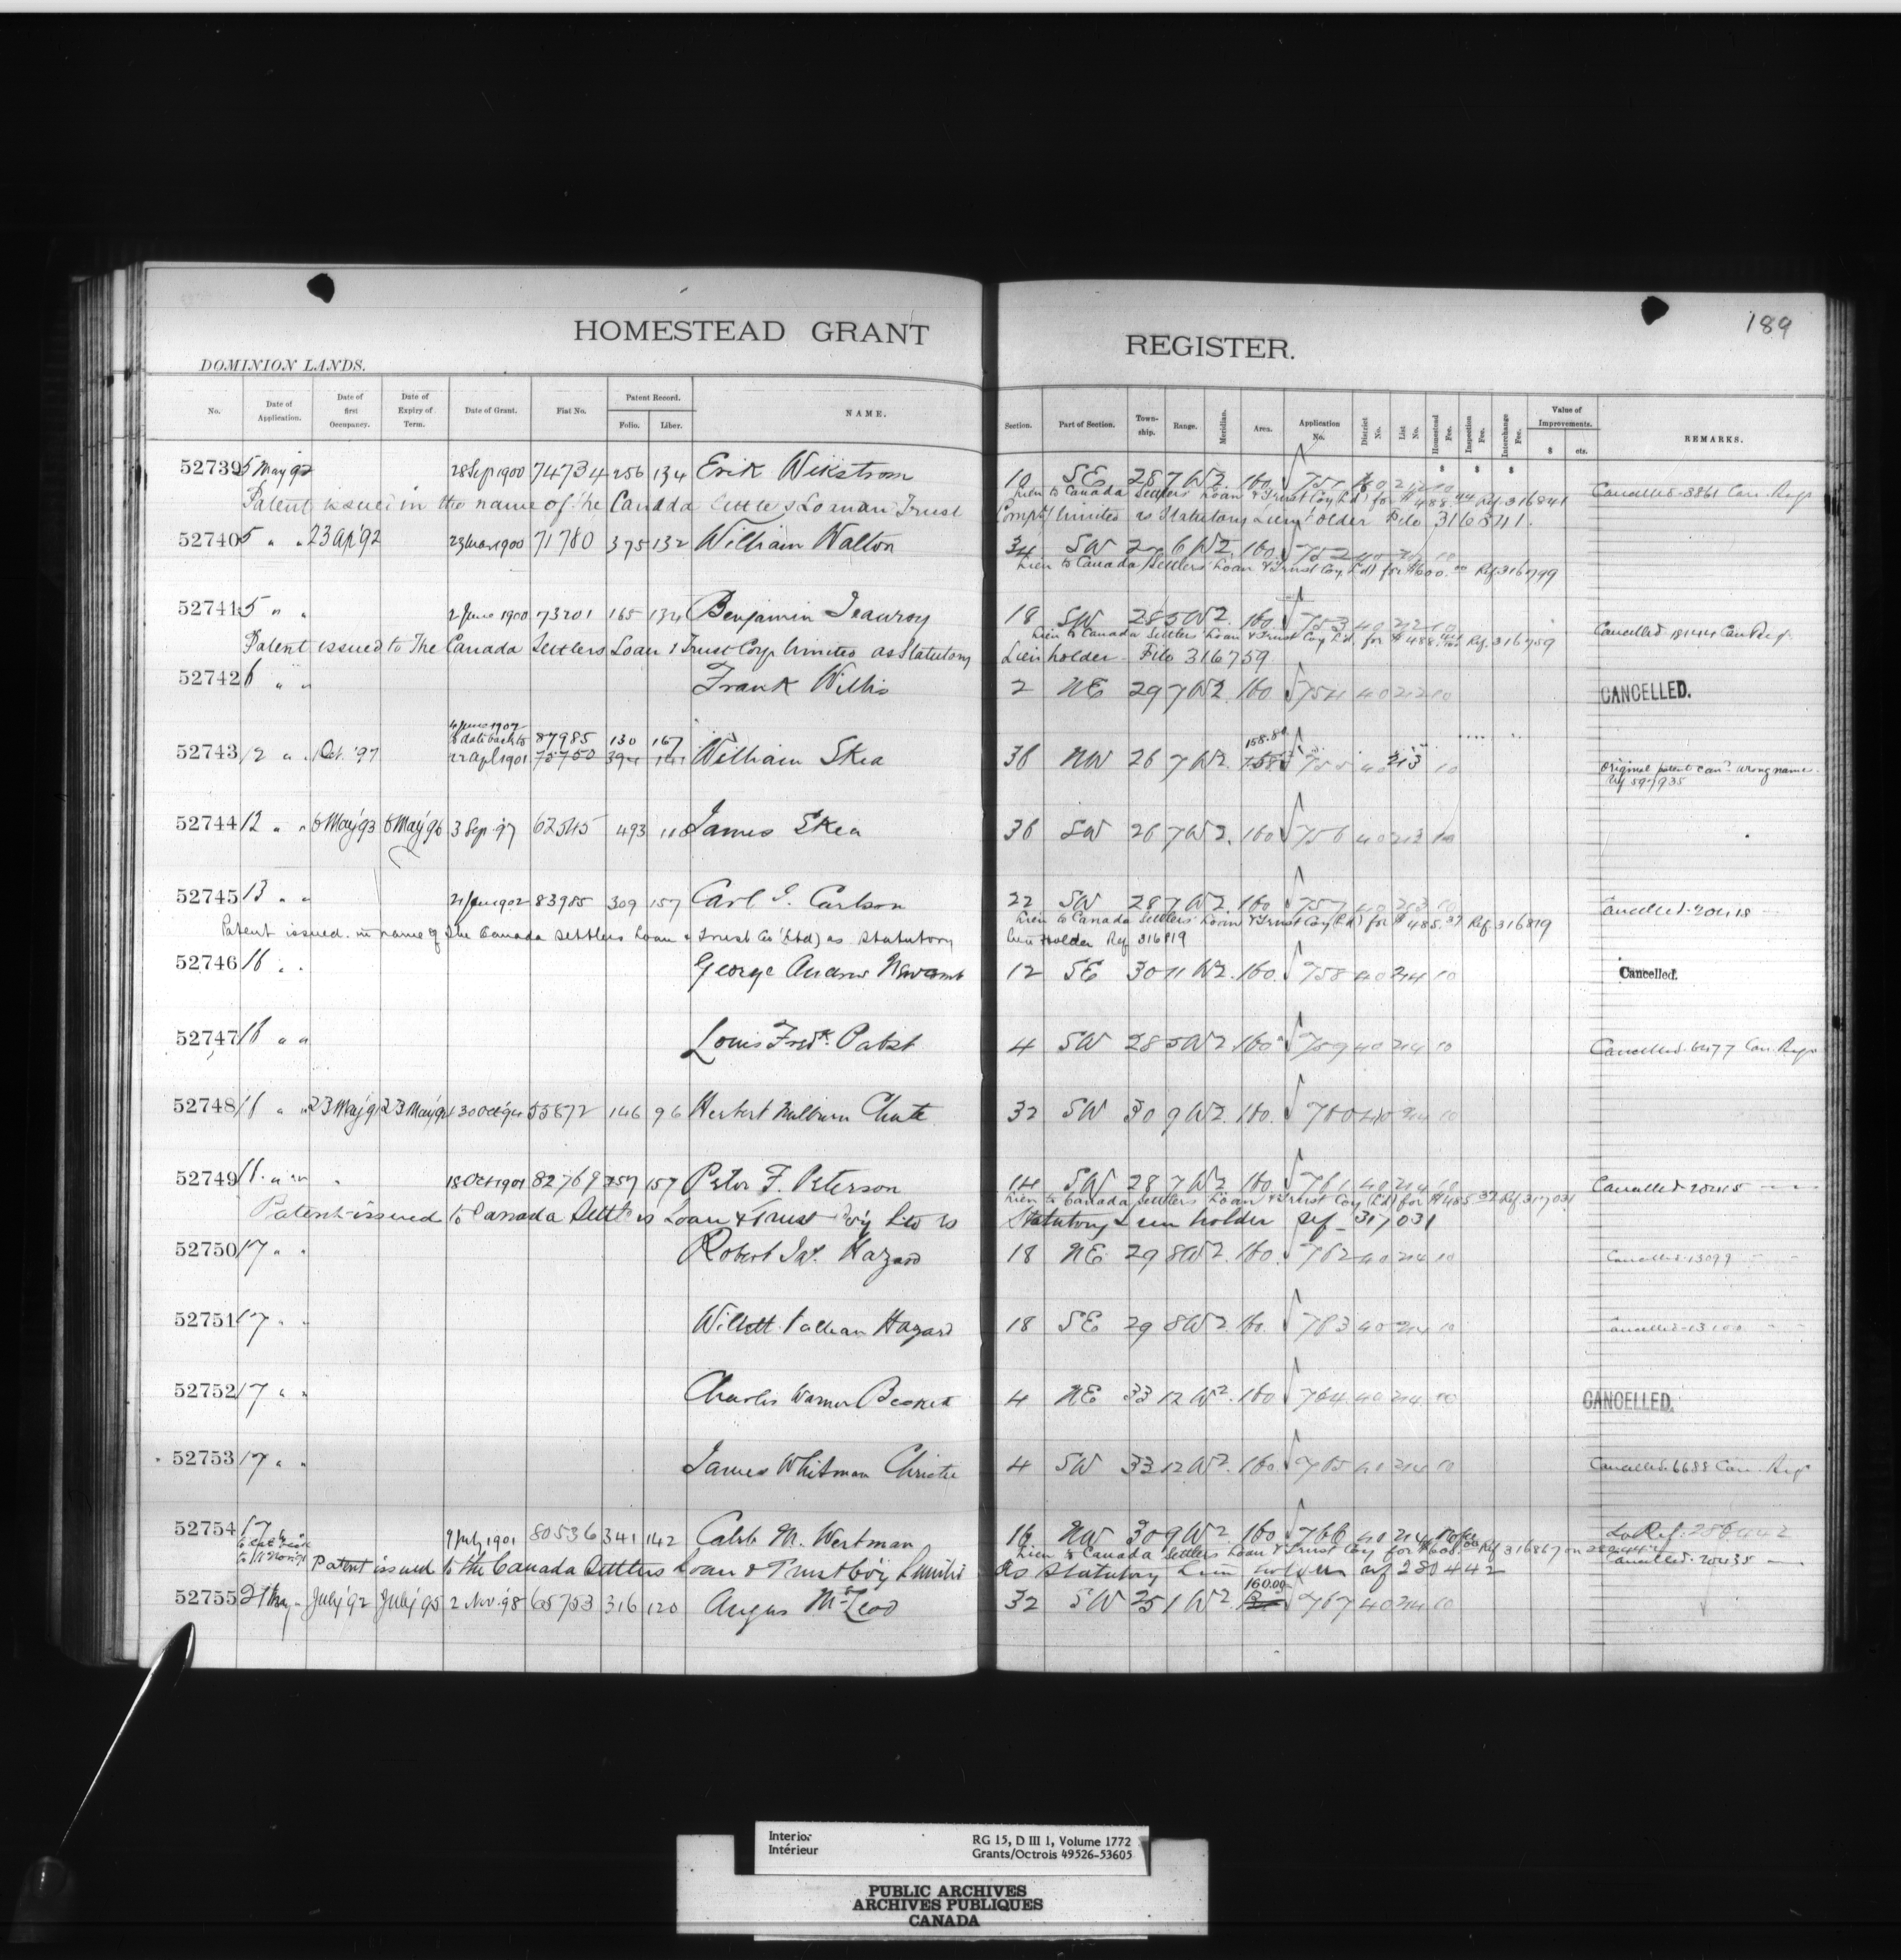 189
HOMESTEAD GRANT REGISTER.
DOMINION LANDS.
No. Date of Application. Date of first Occupancy. Date of Expiry of Term. Date of Grant. Fiat No. Patent Record. Folio. Liber. NAME. Section. Part of Section. Township. Range. Meridian. Area. Application No. District No. List No. Homestead Fee. Inspection Fee. Interchange Fee. Value of Improvements. $ cts. REMARKS.
52739 5 May 92 28 Sep 1900 74734 256 134 Erik Wikstrom 10 SE 28 7 W2. 160 751 40 212 10 Cancelled 3861 Can. Reg.
Lien to Canada Settlers' Loan & Trust Coy (Ld) for $488.44 Ref. 316841
Patent issued in the name of the Canada Settlers Loan and Trust Compy limited as Statutory Lien holder File 316841.
52740 5 " " 23 Ap '92 23 Mar 1900 71780 375 132 William Walton 34 SW 27 6 W2. 160 752 40 212 10
Lien to Canada Settlers' Loan & Trust Coy (Ld) for $600.00 Ref. 316799
52741 5 " " 2 June 1900 73201 165 134 Benjamin 18 SW 28 5 W2. 160 753 40 212 10 Cancelled
Lien to Canada Settlers' Loan & Trust Coy Ld. for $488. Ref. 316759
Patent issued to The Canada Settlers Loan & Trust Corp limited as Statutory Lien holder File 316759
52742 6 " " Frank Willis 2 NE 29 7 W2 160 754 40 212 10 CANCELLED.
4 June 1907 to date back to 87985 130 167 158.80
52743 12 " " Oct. '97 22 Apl 1901 75750 394 141 William Skea 36 NW 26 7 W2. 158 755 40 213 10 Original patent can'd wrong name. Ref 597935
52744 12 " " 6 May '93 6 May '96 3 Sep '97 62545 493 110 James Skea 36 SW 26 7 W2. 160 756 40 213 10
52745 13 " " 21 Jan 1902 83985 309 157 Carl G. Carlson 22 SW 28 7 W2. 160 757 40 213 10 Cancelled 20418
Lien to Canada Settlers' Loan & Trust Coy (Ld) for $485.37 Ref. 316819
Patent issued in name of The Canada Settlers Loan & Trust Co (Ltd) as Statutory Lien Holder Ref 316819
52746 16 " " George Andrew Newcomb 12 SE 30 11 W2. 160. 758 40 214 10 Cancelled.
52747 16 " " Louis Fredk. Pabst 4 SW 28 5 W2 160 759 40 214 10 Cancelled 6477 Can. Reg.
52748 16 " " 23 May '91 23 May '94 30 Oct '94 55872 146 96 Herbert Milburn Chute 32 SW 30 9 W2. 160. 760 40 214 10
52749 16 " " 18 Oct 1901 82769 257 157 Peter F. Peterson 14 SW 28 7 W2 160. 761 40 214 10 Cancelled 20415
Lien to Canada Settlers' Loan & Trust Coy (Ld) for $485.37 Ref 317031
Patent issued to Canada Settlers Loan & Trust Coy Ltd as Statutory Lien holder ref 317031
52750 17 " " Robert Jas. Hazard 18 NE 29 8 W2 160. 762 40 214 10 Cancelled 13099
52751 17 " " Willett Hazard 18 SE 29 8 W2 160. 763 40 214 10 Cancelled 13100
52752 17 " " Charles Warner 4 NE 33 12 W2. 160 764 40 214 10 CANCELLED.
52753 17 " " James Whitman Christie 4 SW 33 12 W2. 160. 765 40 214 10 Cancelled 6688 Can. Reg
52754 17 9 July 1901 80536 341 142 Caleb M. Wertman 16 NW 30 9 W2 160 766 40 214 10
Lien to Canada Settlers Loan & Trust Coy for Ref 316867 Cancelled 20435
Patent issued to the Canada Settlers Loan & Trust Coy Limited as Statutory Lien holders ref 280442
52755 21 May " July '92 July '95 2 Nov. 98 65753 316 120 Angus McLeod 32 SW 25 1 W2 160.00 767 40 214 10
Interior
Intérieur
RG 15, D III 1, Volume 1772
Grants/Octrois 49526-53605
PUBLIC ARCHIVES
ARCHIVES PUBLIQUES
CANADA